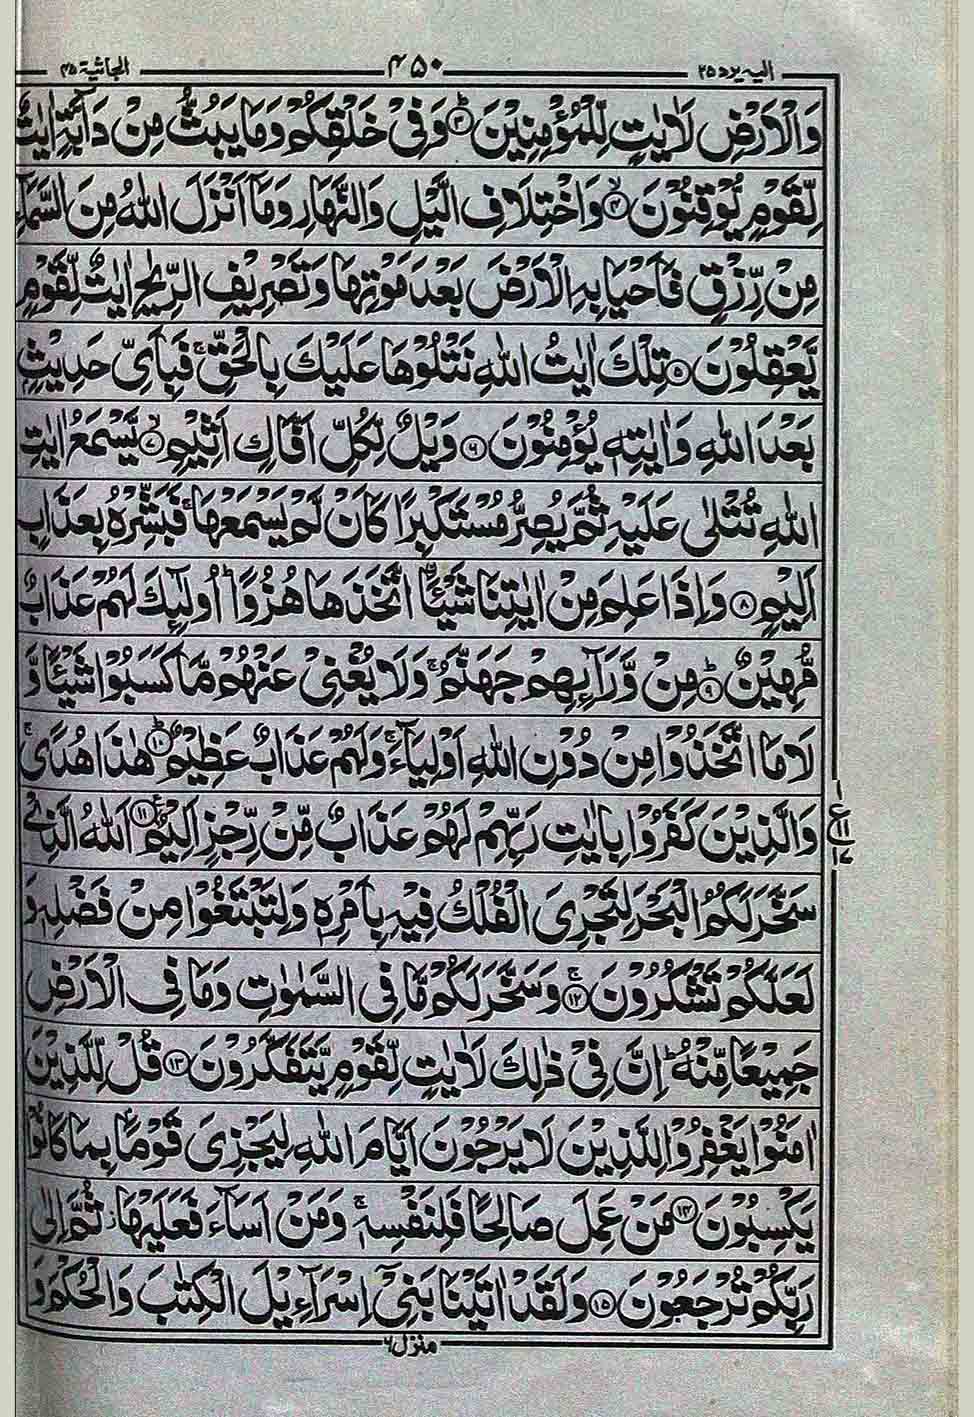 الیه یرد ۲۵ ۴۵۰ الجاثیة ۴۵
وَالْاَرْضِ لَاٰیٰتٍ لِّلْمُؤْمِنِیْنَ ۝۳ؕ وَفِیْ خَلْقِكُمْ وَمَا یَبُثُّ مِنْ دَآبَّةٍ اٰیٰتٌ
لِّقَوْمٍ یُّوْقِنُوْنَ ۝۴ۙ وَاخْتِلَافِ الَّیْلِ وَالنَّهَارِ وَمَاۤ اَنْزَلَ اللّٰهُ مِنَ السَّمَآءِ
مِنْ رِّزْقٍ فَاَحْیَا بِهِ الْاَرْضَ بَعْدَ مَوْتِهَا وَتَصْرِیْفِ الرِّیٰحِ اٰیٰتٌ لِّقَوْمٍ
یَّعْقِلُوْنَ ۝۵ تِلْكَ اٰیٰتُ اللّٰهِ نَتْلُوْهَا عَلَیْكَ بِالْحَقِّ ۚ فَبِاَیِّ حَدِیْثٍۭ
بَعْدَ اللّٰهِ وَاٰیٰتِهٖ یُؤْمِنُوْنَ ۝۶ وَیْلٌ لِّكُلِّ اَفَّاكٍ اَثِیْمٍ ۝۷ۙ یَّسْمَعُ اٰیٰتِ
اللّٰهِ تُتْلٰی عَلَیْهِ ثُمَّ یُصِرُّ مُسْتَكْبِرًا كَاَنْ لَّمْ یَسْمَعْهَا ۚ فَبَشِّرْهُ بِعَذَابٍ
اَلِیْمٍ ۝۸ وَاِذَا عَلِمَ مِنْ اٰیٰتِنَا شَیْـًٔا اتَّخَذَهَا هُزُوًا ؕ اُولٰٓئِكَ لَهُمْ عَذَابٌ
مُّهِیْنٌ ۝۹ؕ مِنْ وَّرَآئِهِمْ جَهَنَّمُ ۚ وَلَا یُغْنِیْ عَنْهُمْ مَّا كَسَبُوْا شَیْـًٔا وَّ
لَا مَا اتَّخَذُوْا مِنْ دُوْنِ اللّٰهِ اَوْلِیَآءَ ۚ وَلَهُمْ عَذَابٌ عَظِیْمٌ ۝۱۰ؕ هٰذَا هُدًی ۚ
وَالَّذِیْنَ كَفَرُوْا بِاٰیٰتِ رَبِّهِمْ لَهُمْ عَذَابٌ مِّنْ رِّجْزٍ اَلِیْمٌ ۝۱۱ اَللّٰهُ الَّذِیْ
۱ ع ۱۱ ۱۷
سَخَّرَ لَكُمُ الْبَحْرَ لِتَجْرِیَ الْفُلْكُ فِیْهِ بِاَمْرِهٖ وَلِتَبْتَغُوْا مِنْ فَضْلِهٖ وَ
لَعَلَّكُمْ تَشْكُرُوْنَ ۝۱۲ۚ وَسَخَّرَ لَكُمْ مَّا فِی السَّمٰوٰتِ وَمَا فِی الْاَرْضِ
جَمِیْعًا مِّنْهُ ؕ اِنَّ فِیْ ذٰلِكَ لَاٰیٰتٍ لِّقَوْمٍ یَّتَفَكَّرُوْنَ ۝۱۳ قُلْ لِّلَّذِیْنَ
اٰمَنُوْا یَغْفِرُوْا لِلَّذِیْنَ لَا یَرْجُوْنَ اَیَّامَ اللّٰهِ لِیَجْزِیَ قَوْمًۢا بِمَا كَانُوْا
یَكْسِبُوْنَ ۝۱۴ مَنْ عَمِلَ صَالِحًا فَلِنَفْسِهٖ ۚ وَمَنْ اَسَآءَ فَعَلَیْهَا ؗ ثُمَّ اِلٰی
رَبِّكُمْ تُرْجَعُوْنَ ۝۱۵ وَلَقَدْ اٰتَیْنَا بَنِیْۤ اِسْرَآءِیْلَ الْكِتٰبَ وَالْحُكْمَ وَ
منزل ۶